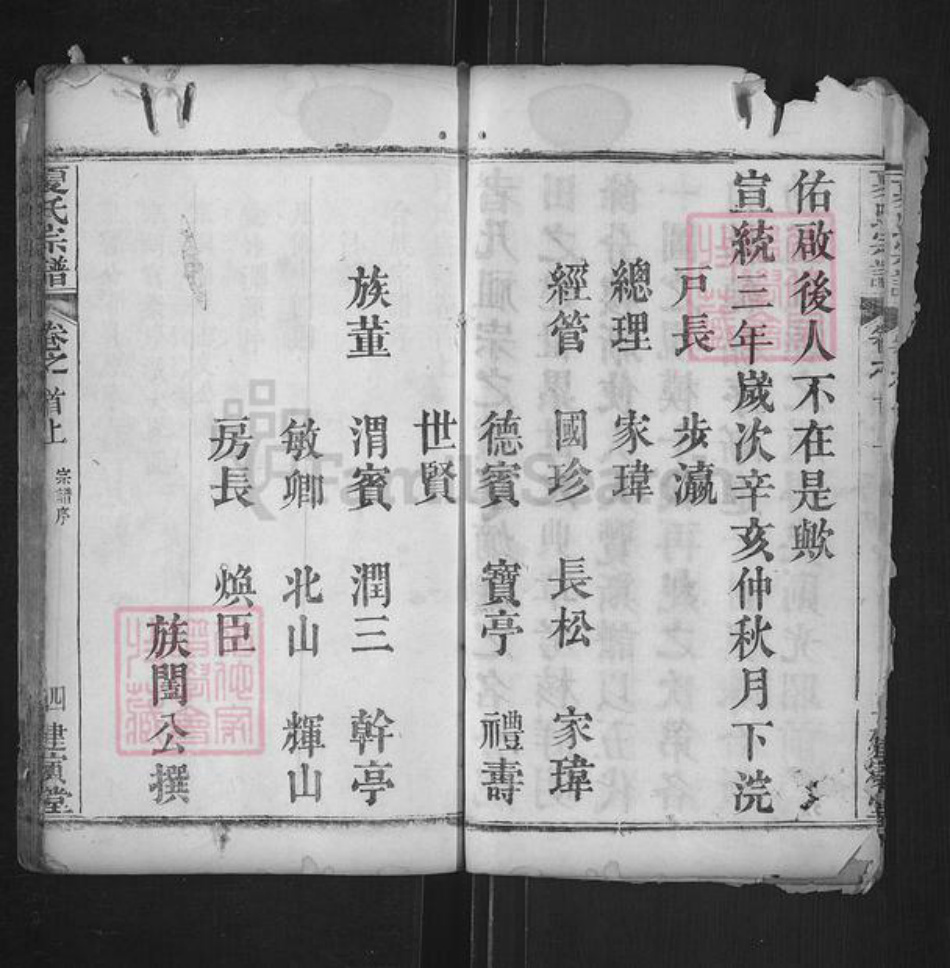 佑啟後人不在是歟
宣統三年歲次辛亥仲秋月下浣
戶長 步瀛
總理 家瑋
經管 國珍 長松 家瑋
德賓 寶亭 禮壽
世賢
族董 渭賓 潤三 幹亭
敏卿 北山 輝山
房長 煥臣
族閤公撰
夏氏宗譜 卷之首上 宗譜序 四 建
FamilySearch